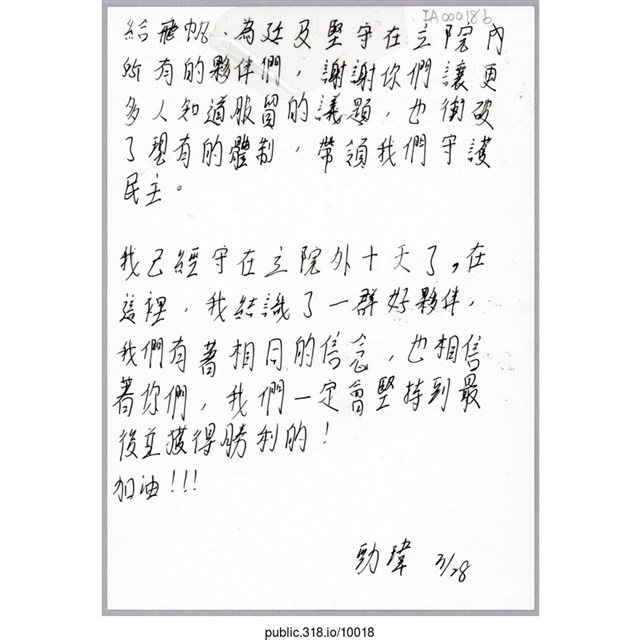 IA00018b
給飛帆、為廷及堅守在立院內
所有的夥伴們，謝謝你們讓更
多人知道服貿的議題，也衝破
了現有的體制，帶領我們守護
民主。
我已經守在立院外十天了，在
這裡，我結識了一群好夥伴，
我們有著相同的信念，也相信
著你們，我們一定會堅持到最
後並獲得勝利的！
加油!!!
勁瑋 3/28
public.318.io/10018